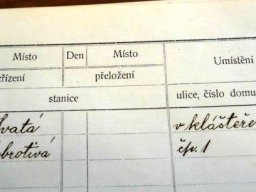 Místo Den Místo Umístění
zřízení přeložení ulice, číslo domu
stanice
vatá v klášteře
brotivá čp. 1